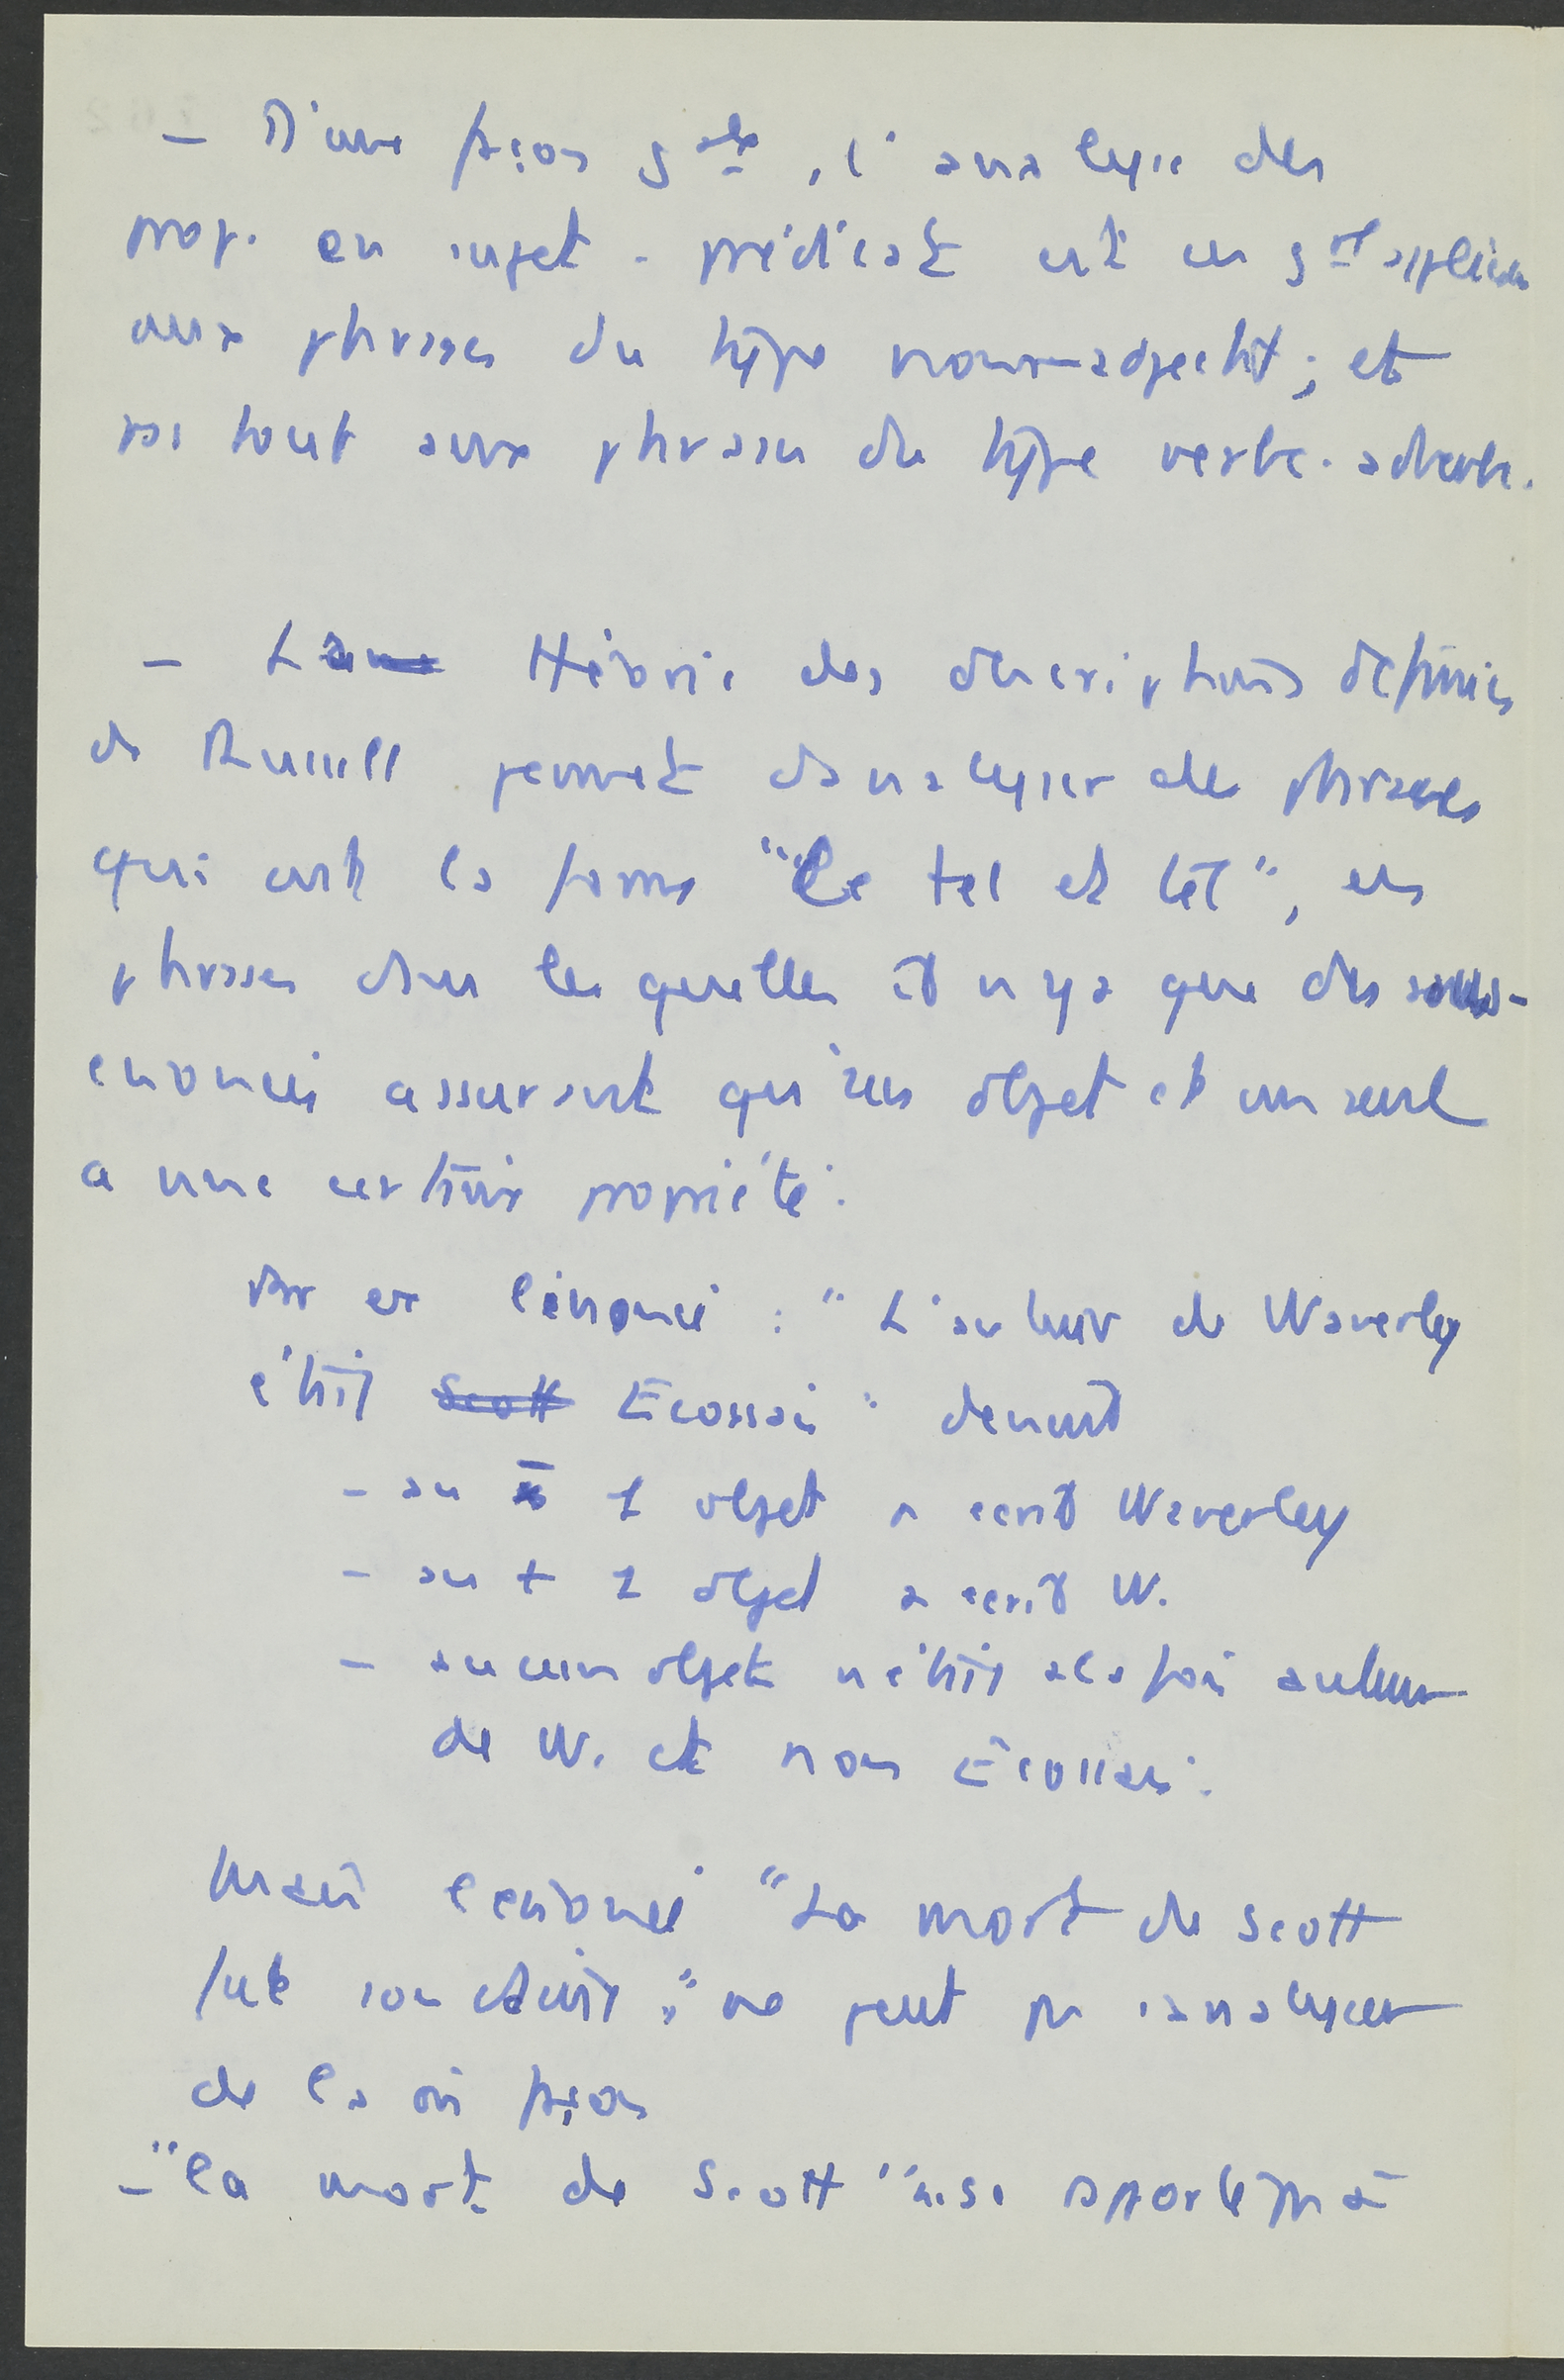 - D'une façon gale, l'analyse des
prop. en sujet - prédicat est en gal appliquée
aux phrases du type nom-adjectif ; et
pas tout aux phrases du type verbe-adverbe.
- La théorie des descriptions définies
de Russell permet d'analyser des phrases
qui ont la forme "Le tel est tel", des
phrases dans lesquelles il n'y a que des sous-
énoncés assurant qu'un objet et un seul
a une certaine propriété.
Par ex l'énoncé : "L'auteur de Waverley
était Scott Ecossais" devient
- au - 1 objet a écrit Waverley
- au + 1 objet a écrit W.
- aucun objet n'était à la fois auteur
de W. et non Ecossais.
Mais l'énoncé "La mort de Scott
fut" ne peut pas s'analyser
de la mi façon
- "la mort de Scott" se pas à